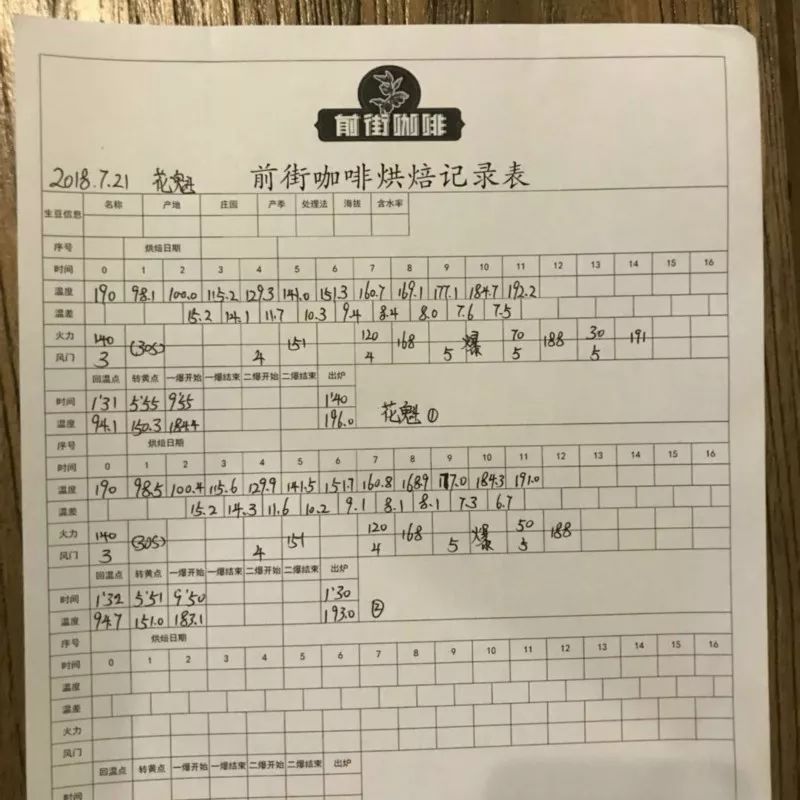 前街咖啡
2018.7.21 花魁 前街咖啡烘焙记录表
生豆信息 名称 产地 庄园 产季 处理法 海拔 含水率
序号 烘焙日期
时间 0 1 2 3 4 5 6 7 8 9 10 11 12 13 14 15 16
温度 190 98.1 100.0 115.2 129.3 141.0 151.3 160.7 169.1 177.1 184.7 192.2
温差 15.2 14.1 11.7 10.3 9.4 8.4 8.0 7.6 7.5
火力 140 (30s) 151 120 168 爆 70 188 30 191
风门 3 4 4 5 5 5
回温点 转黄点 一爆开始 一爆结束 二爆开始 二爆结束 出炉
时间 1'31 5'55 9'55 1'40
温度 94.1 150.3 184.4 196.0 花魁 ①
序号 烘焙日期
时间 0 1 2 3 4 5 6 7 8 9 10 11 12 13 14 15 16
温度 190 98.5 100.4 115.6 129.9 141.5 151.7 160.8 168.9 177.0 184.3 191.0
温差 15.2 14.3 11.6 10.2 9.1 8.1 8.1 7.3 6.7
火力 140 (30s) 151 120 168 爆 50 188
风门 3 4 4 5 5
回温点 转黄点 一爆开始 一爆结束 二爆开始 二爆结束 出炉
时间 1'32 5'51 9'50 1'30
温度 94.7 151.0 183.1 193.0 ②
序号 烘焙日期
时间 0 1 2 3 4 5 6 7 8 9 10 11 12 13 14 15 16
温度
温差
火力
风门
回温点 转黄点 一爆开始 一爆结束 二爆开始 二爆结束 出炉
时间